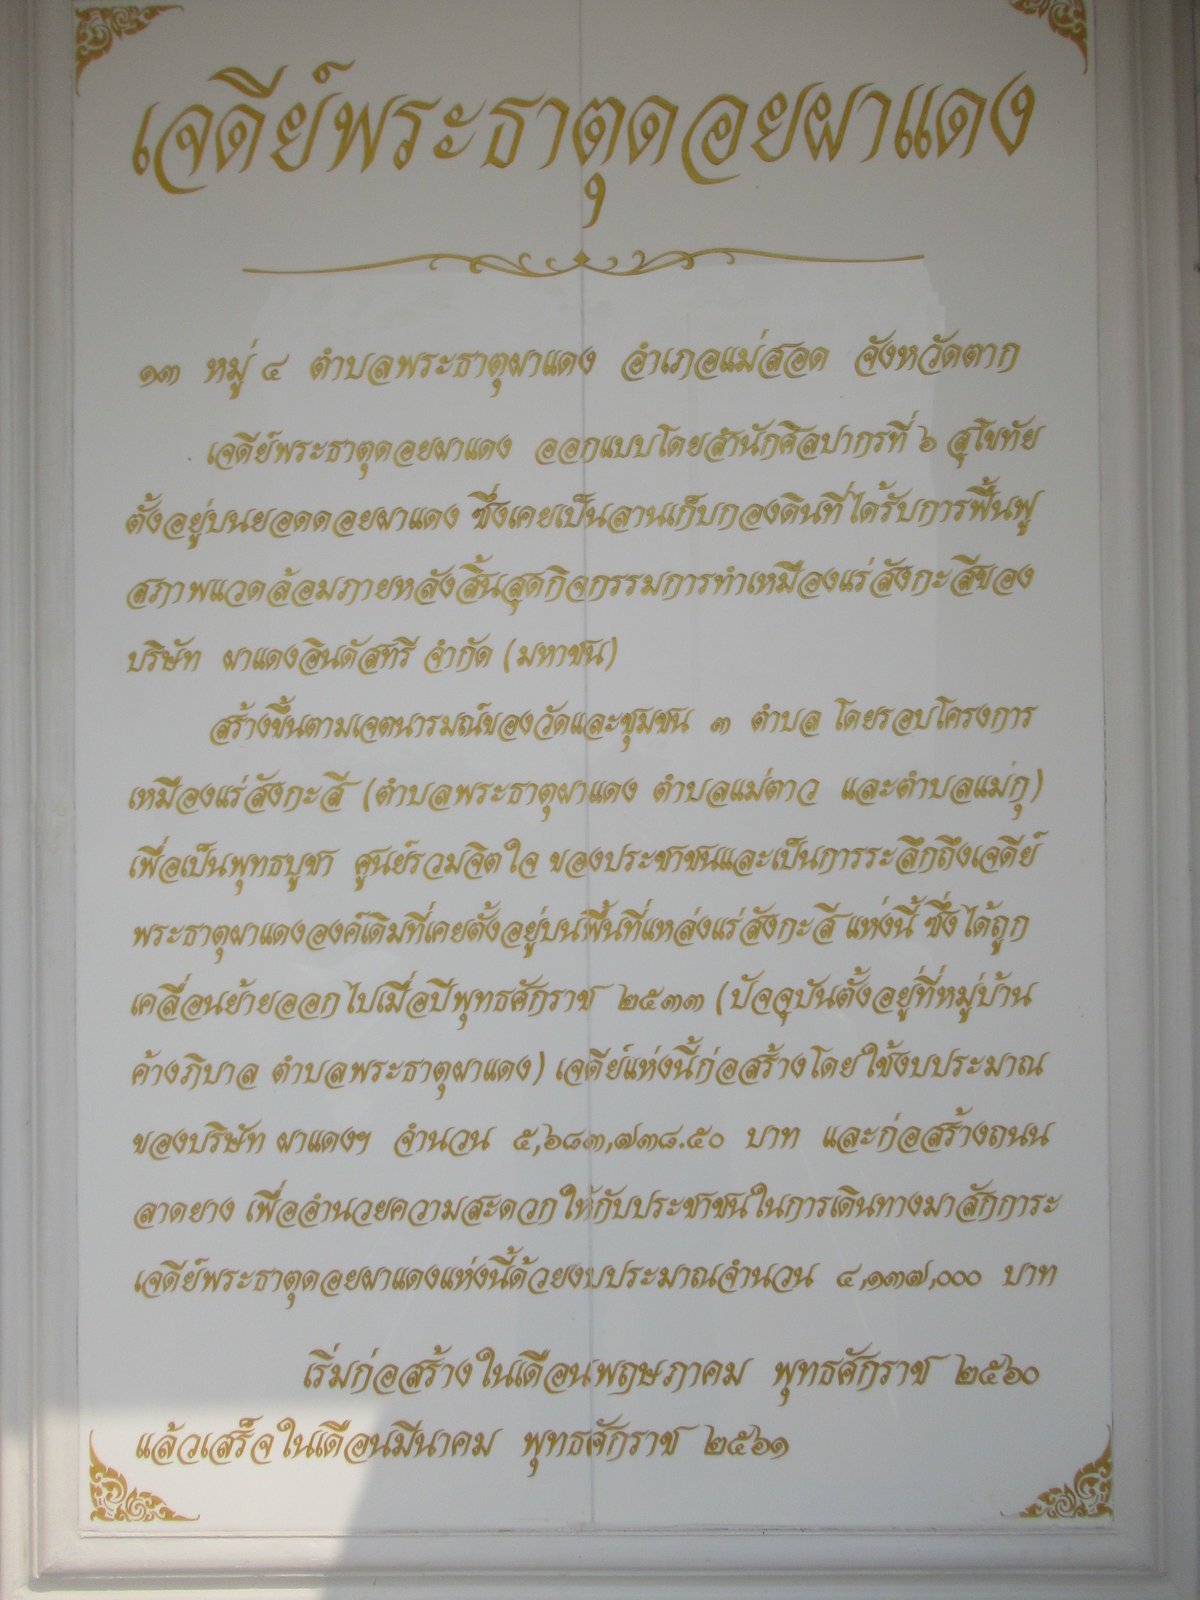 เจดีย์พระธาตุดอยผาแดง
๑๓ หมู่ ๔ ตำบลพระธาตุผาแดง อำเภอแม่สอด จังหวัดตาก
เจดีย์พระธาตุดอยผาแดง ออกแบบโดยสำนักศิลปากรที่ ๖ สุโขทัย
ตั้งอยู่บนยอดดอยผาแดง ซึ่งเคยเป็นลานเก็บกองดินที่ได้รับการฟื้นฟู
สภาพแวดล้อมภายหลังสิ้นสุดกิจกรรมการทำเหมืองแร่สังกะสีของ
บริษัท ผาแดงอินดัสทรี จำกัด (มหาชน)
สร้างขึ้นตามเจตนารมณ์ของวัดและชุมชน ๓ ตำบล โดยรอบโครงการ
เหมืองแร่สังกะสี (ตำบลพระธาตุผาแดง ตำบลแม่ตาว และตำบลแม่กุ)
เพื่อเป็นพุทธบูชา ศูนย์รวมจิตใจ ของประชาชนและเป็นการระลึกถึงเจดีย์
พระธาตุผาแดงองค์เดิมที่เคยตั้งอยู่บนพื้นที่แหล่งแร่สังกะสี แห่งนี้ ซึ่งได้ถูก
เคลื่อนย้ายออกไปเมื่อปีพุทธศักราช ๒๕๓๓ (ปัจจุบันตั้งอยู่ที่หมู่บ้าน
ค้างภิบาล ตำบลพระธาตุผาแดง) เจดีย์แห่งนี้ก่อสร้างโดยใช้งบประมาณ
ของบริษัท ผาแดงฯ จำนวน ๕,๖๘๓,๗๓๘.๕๐ บาท และก่อสร้างถนน
ลาดยาง เพื่ออำนวยความสะดวกให้กับประชาชนในการเดินทางมาสักการะ
เจดีย์พระธาตุดอยผาแดงแห่งนี้ด้วยงบประมาณจำนวน ๔,๑๓๗,๐๐๐ บาท
เริ่มก่อสร้างในเดือนพฤษภาคม พุทธศักราช ๒๕๖๐
แล้วเสร็จในเดือนมีนาคม พุทธศักราช ๒๕๖๑